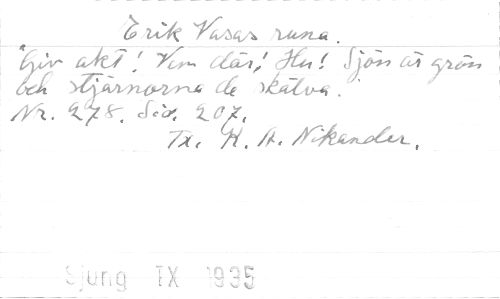 Erik Vasas runa.
"Giv akt! Vem där! Hu! Sjön är grön
och stjärnorna de skälva.
Nr. 278. Sid. 207.
Tx. K. A. Nikander.
Sjung IX 1935